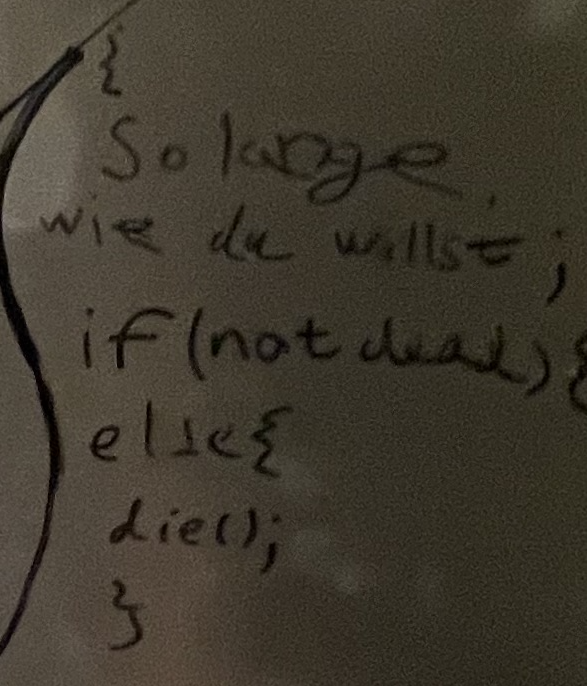 {
So lange
wie du willst;
if (not dead) {
else {
die();
}